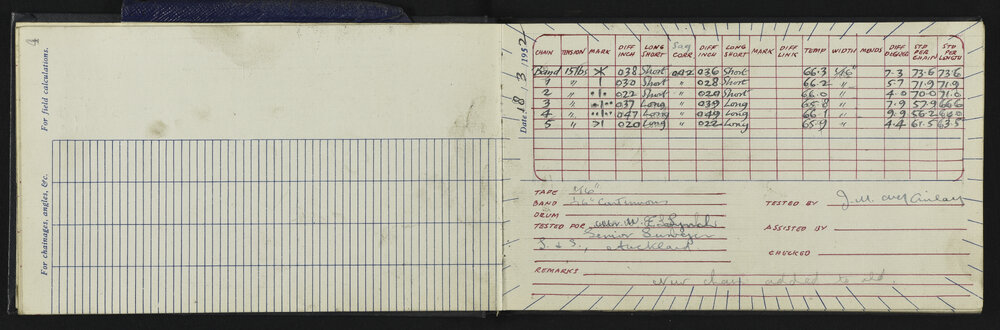 For field calculations.
For chainages, angles, &c.
Date 18 . 3 . 1952
CHAIN TENSION MARK DIFF INCH LONG SHORT Sag CORR DIFF INCH LONG SHORT MARK DIFF LINK TEMP WIDTH MENDS DIFF DEGREES STD PER CHAIN STD PER LENGTH
Band 15 lbs 038 Short 002 036 Short 66.3 1/16" 7.3 73.6 73.6
1 " | 030 Short " 028 Short 66.2 " 5.7 71.9 71.9
2 " •|• 022 Short " 020 Short 66.0 " 4.0 70.0 71.0
3 " •|•• 037 Long " 039 Long 65.8 " 7.9 57.9 66.6
4 " ••|•• 047 Long " 049 Long 66.1 " 9.9 56.2 64.0
5 " >| 020 Long " 022 Long 65.9 " 4.4 61.5 63.5
TAPE 1/16"
BAND 1/16" Continuous
DRUM
TESTED FOR W. F. Lynch
Senior Surveyor
L. & S., Auckland
REMARKS New chain added to old.
TESTED BY J. M.
ASSISTED BY
CHECKED